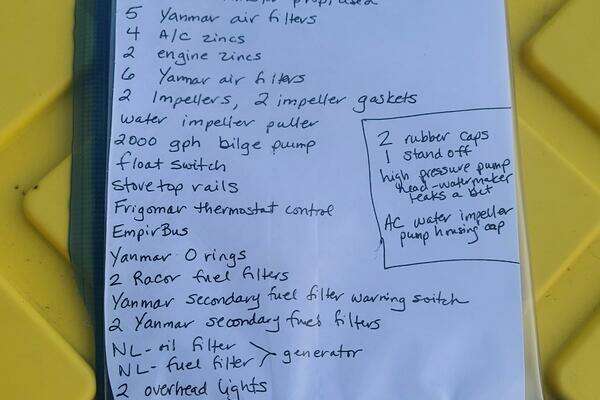 5 Yanmar air filters
4 A/C zincs
2 engine zincs
6 Yanmar air filters
2 Impellers, 2 impeller gaskets
water impeller puller
2000 gph bilge pump
float switch
Stovetop rails
Frigomar thermostat control
EmpirBus
Yanmar O rings
2 Racor fuel filters
Yanmar secondary fuel filter warning switch
2 Yanmar secondary fuel filters
NL- oil filter
NL- fuel filter
generator
2 overhead lights
2 rubber caps
1 stand off
high pressure pump
head-watermaker
leaks a bit
AC water impeller
pump housing cap